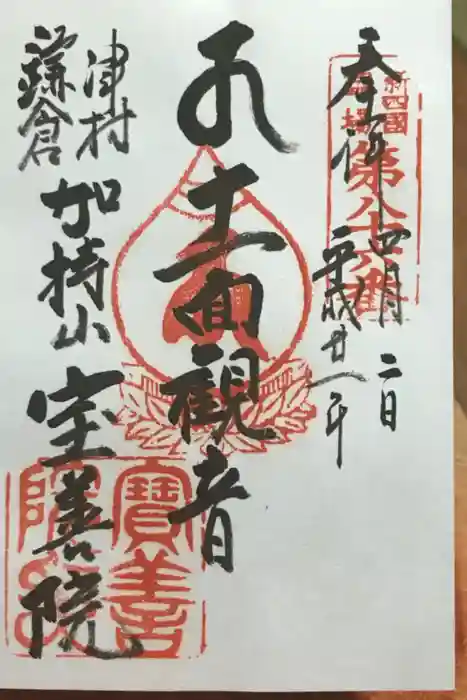 奉拝
四月二日
平成廿一年
新四國
霊場
第八十六番
十一面観音
鎌倉
津村
加持山
宝善院
寶善
院